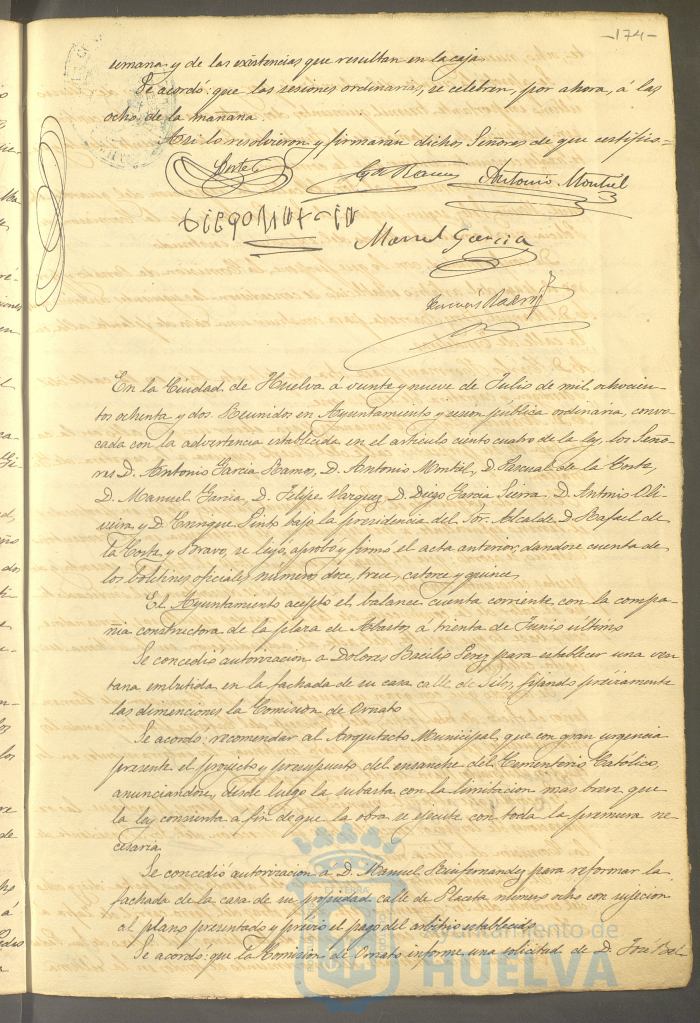 -174-
semana y de las existencias que resultan en la caja.
Se acordó: que las sesiones ordinarias, se celebren, por ahora, á las
ocho de la mañana.
Asi lo resolvieron y firmarán dichos Señores de que certifico=
Antonio Montiel
Diego Garcia
Manuel Garcia
En la Ciudad de Huelva á veinte y nueve de Julio de mil ochocien
tos ochenta y dos. Reunidos en Ayuntamiento y sesion pública ordinaria, convo
cada con la advertencia establecida en el artículo ciento cuatro de la ley, los Seño
res D. Antonio Garcia Ramos, D. Antonio Montiel, D. Pascual de la Corte,
D. Manuel Garcia, D. Felipe Vazquez, D. Diego Garcia Sierra, D. Antonio Oli
veira y D. Enrique Pinto bajo la presidencia del Sor. Alcalde D. Rafael de
la Corte y Bravo, se leyó, aprobó y firmó el acta anterior, dandose cuenta de
los boletines oficiales números doce, trece, catorce y quince.
El Ayuntamiento aceptó el balance cuenta corriente con la compa
ñia constructora de la plaza de Abastos á treinta de Junio ultimo
Se concedió autorizacion á Dolores Basilio Perez para establecer una ven
tana embutida en la fachada de su casa calle de Silos, fijando previamente
las dimenciones la Comision de Ornato.
Se acordó: recomendar al Arquitecto Municipal, que con gran urgencia
presente el proyecto y presupuesto del ensanche del Cementerio Católico,
anunciandose, desde luego la subasta con la limitacion más breve que
la ley consienta a fin de que la obra se ejecute con toda la premura ne
cesaria.
Se concedió autorizacion á D. Manuel para reformar la
fachada de la casa de su propiedad calle de Placeta número ocho con sujecion
al plano presentado y previo el pago del arbitrio establecido.
Se acordó: que la Comision de Ornato informe una solicitud de D. José
Ayuntamiento de
HUELVA